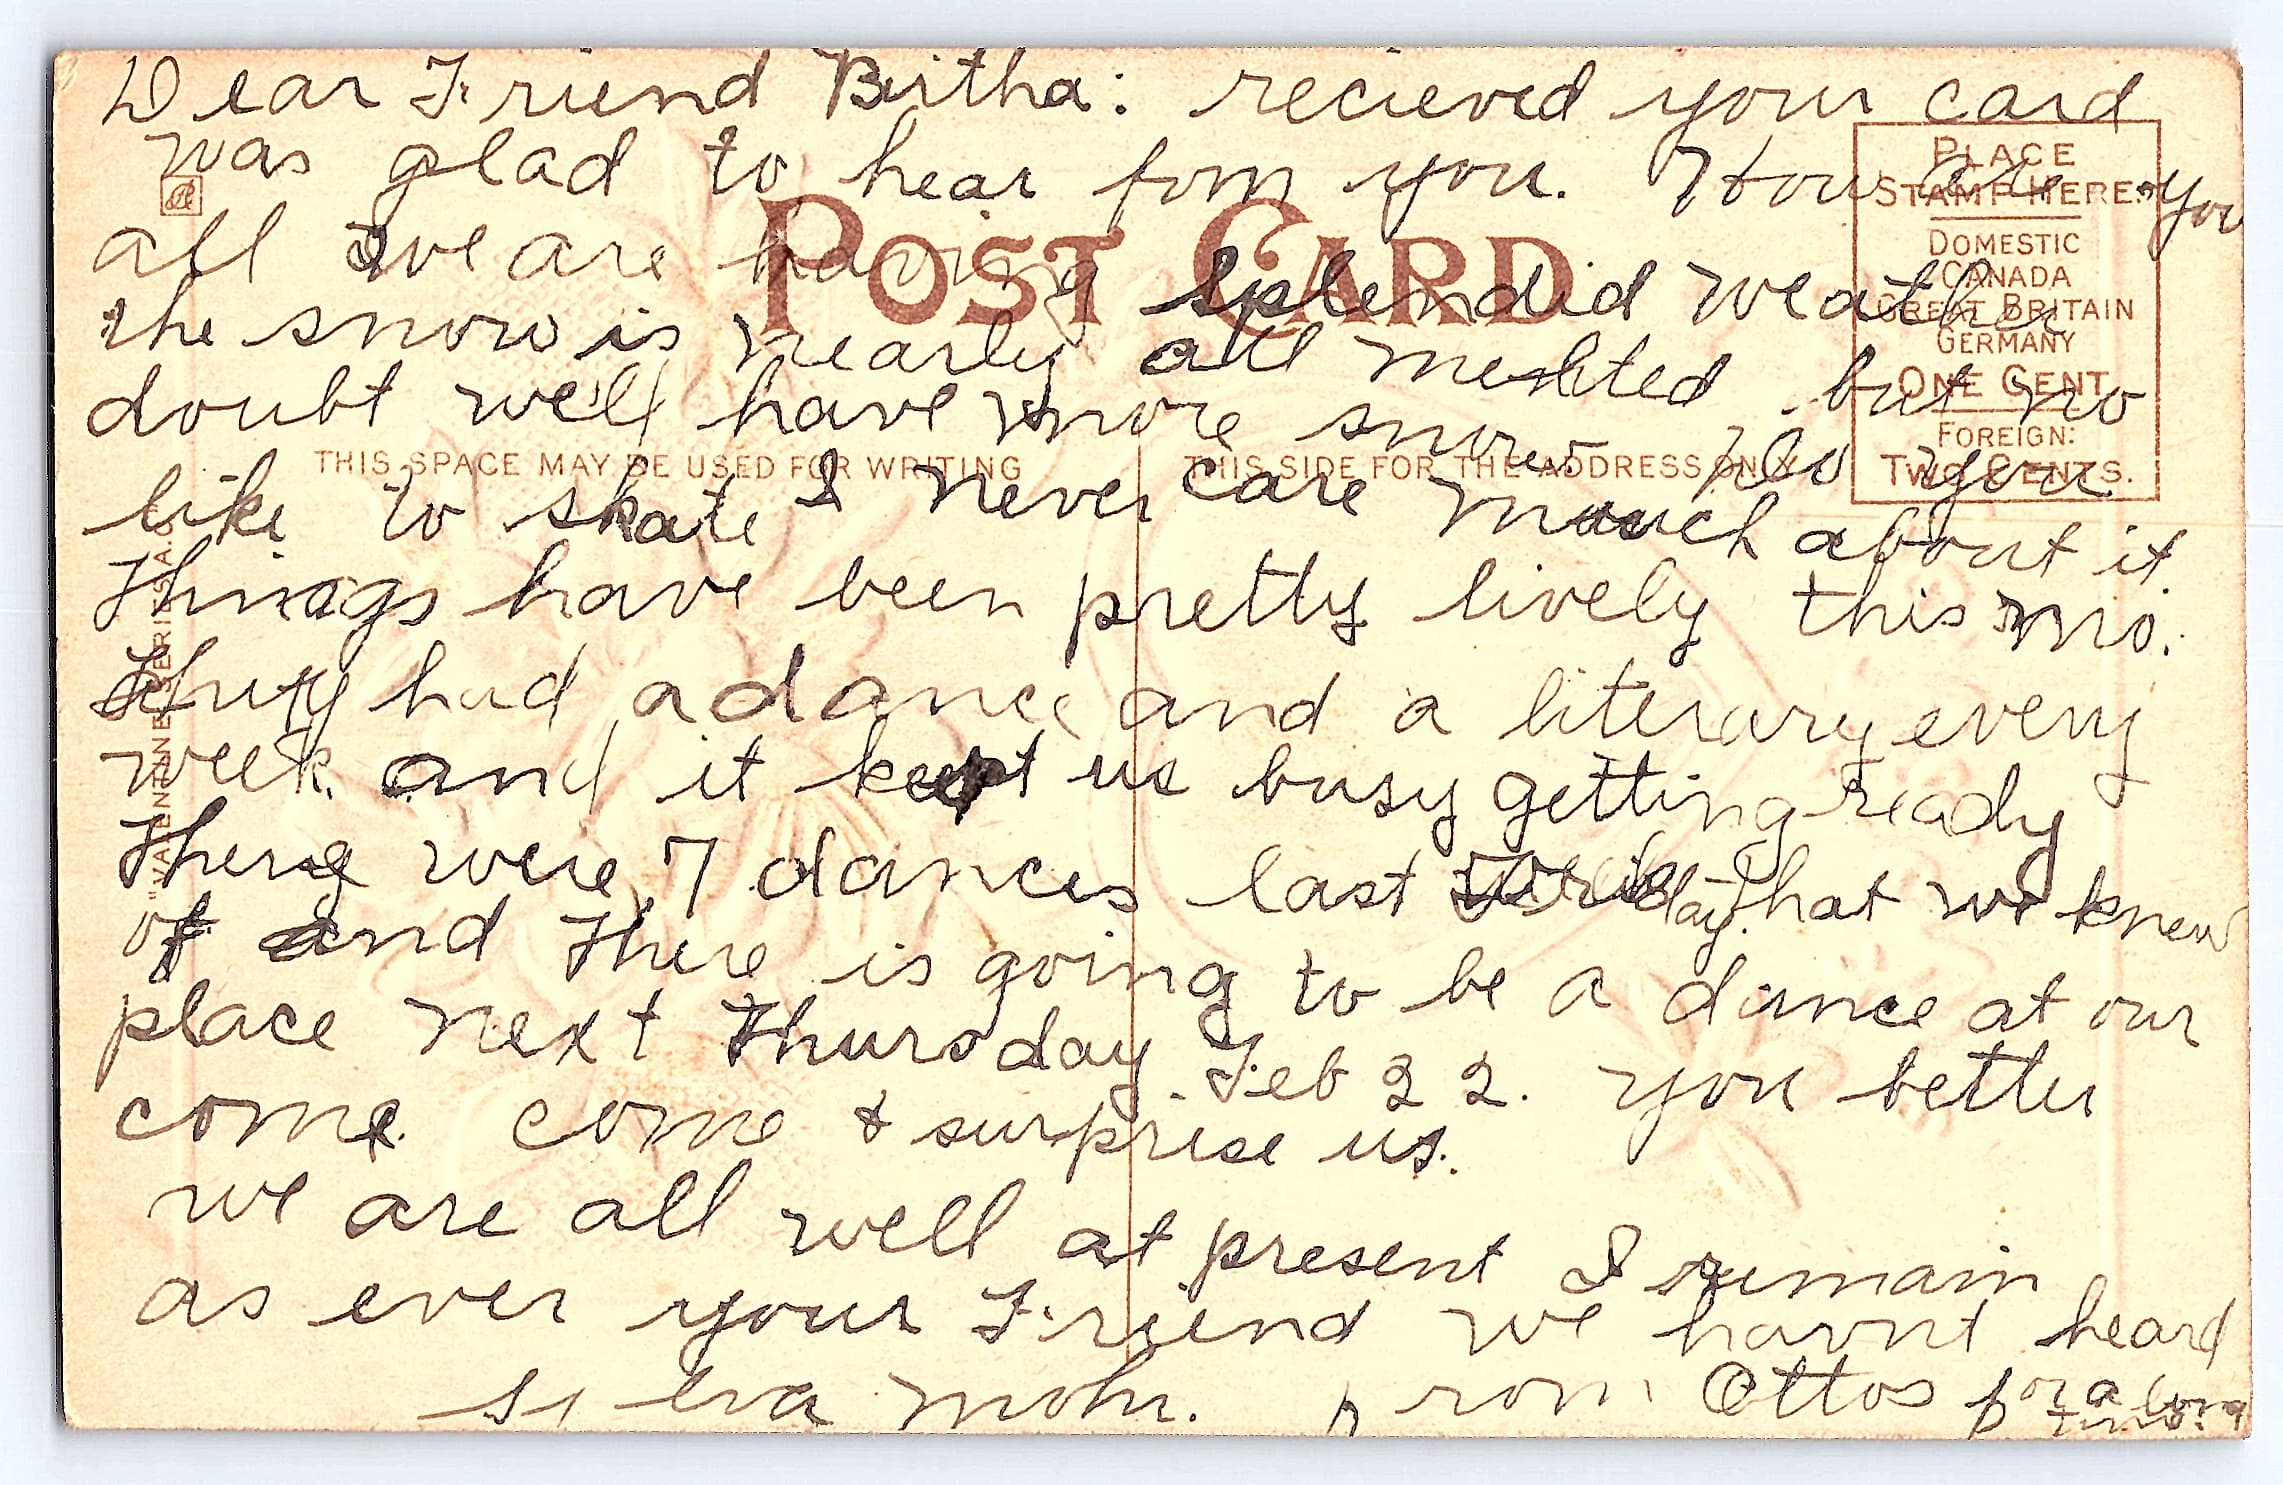 Dear Friend Birtha: recieved your card
was glad to hear fom you. How are you
all we are having splendid weather
the snow is nearly all melted but no
doubt we'll have more snow. Do you
like to skate I never care much about it.
Things have been pretty lively this mo.
They had a dance and a literary every
week and it kept us busy getting ready
There were 7 dances last that we knew
of and there is going to be a dance at our
place next Thursday. Feb 22. you better
come. come & surprise us.
we are all well at present I remain
as ever your Friend we havnt heard
eva mohr. from Ottos for a long
time.
POST CARD
THIS SPACE MAY BE USED FOR WRITING
THIS SIDE FOR THE ADDRESS ONLY
PLACE
STAMP HERE.
DOMESTIC
CANADA
GREAT BRITAIN
GERMANY
ONE CENT
FOREIGN:
TWO CENTS.
"VALENTINE" SERIES